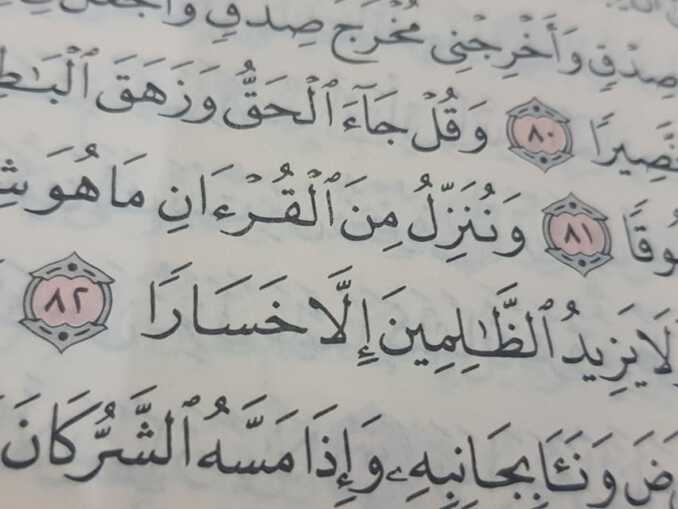 صِدْقٍ وَأَخْرِجْنِى مُخْرَجَ صِدْقٍ
نَّصِيرًا ٨٠ وَقُلْ جَآءَ ٱلْحَقُّ وَزَهَقَ
٨١ وَنُنَزِّلُ مِنَ ٱلْقُرْءَانِ مَا هُوَ
لَا يَزِيدُ ٱلظَّٰلِمِينَ إِلَّا خَسَارًا ٨٢
وَنَـَٔا بِجَانِبِهِۦ وَإِذَا مَسَّهُ ٱلشَّرُّ كَانَ